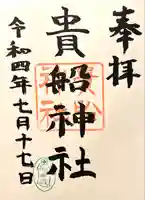 奉拝
貴船神社
令和四年七月十七日